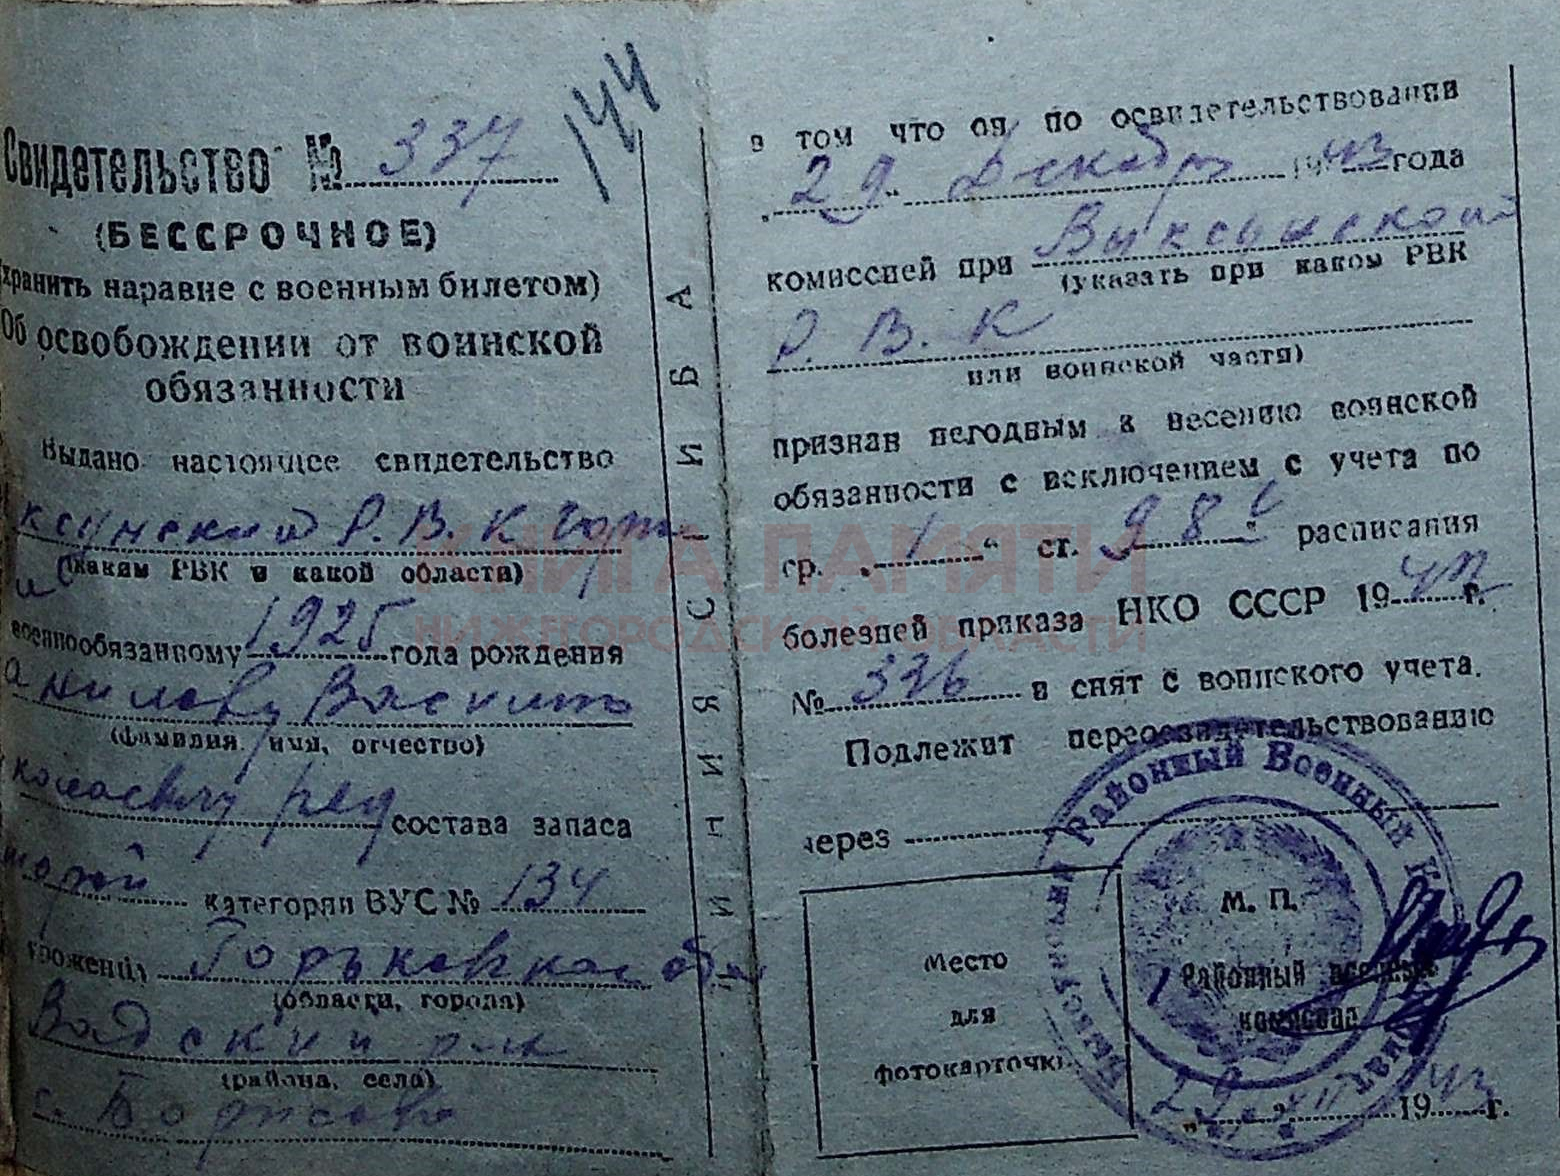 144
Свидетельство № 337
(БЕССРОЧНОЕ)
хранить наравне с военным билетом)
Об освобождении от воинской
обязанности
Выдано настоящее свидетельство
ксунский Р.В.К
(каким РВК и какой области)
военнообязанному 1925 года рождения
анилову
(фамилия, имя, отчество)
колаевичу ряд состава запаса
категории ВУС № 134
уроженец Горьковской обл
(области, города)
Вадский р-н
(района, села)
с. Борисово
ЛИНИЯ СГИБА
в том что он по освидетельствовании
"29" Декабр 1943 года
комиссией при Выксунской
(указать при каком РВК
Р. В. К
или воинской части)
признан негодным к несению воинской
обязанности с исключением с учета по
гр. "1" ст. 98 расписания
болезней приказа НКО СССР 1942 г.
№ 336 и снят с воинского учета.
Подлежит переосвидетельствованию
через
Место
для
фотокарточки
М. П.
Районный военный
комиссар
"29" XII 1943 г.
Районный Военный
КНИГА ПАМЯТИ
НИЖЕГОРОДСКОЙ ОБЛАСТИ